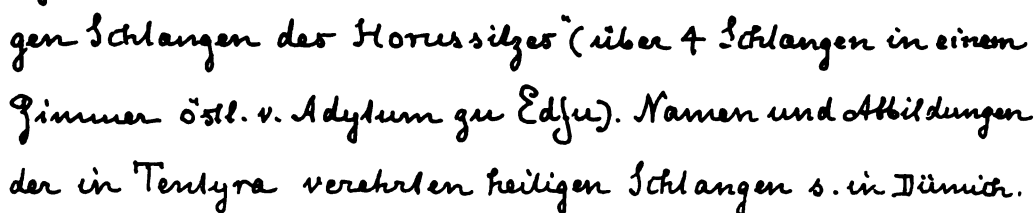 gen Schlangen des Horussitzes" (über 4 Schlangen in einem
Zimmer östl. v. Adytum zu Edfu). Namen und Abbildungen
der in Tentyra verehrten heiligen Schlangen s. in Dümich.